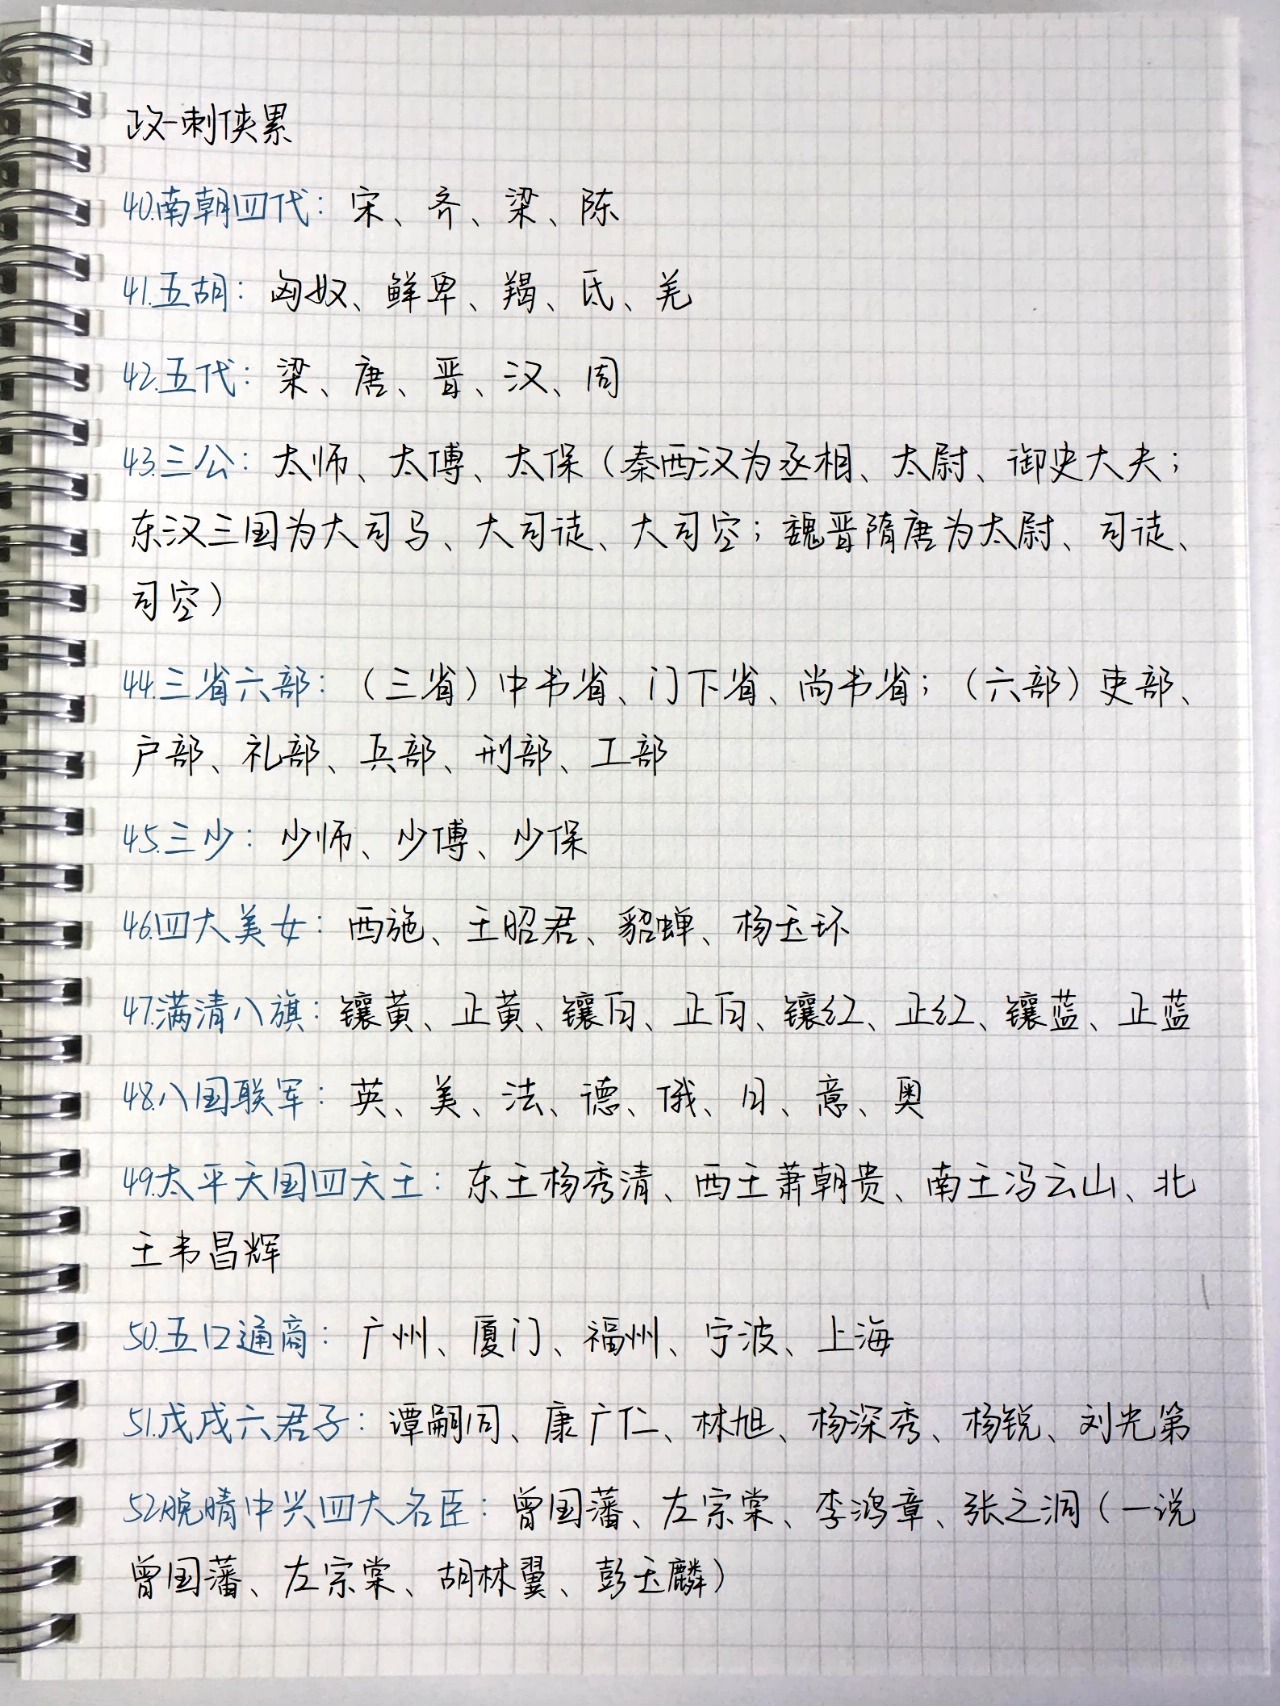 政一刺侠累
40.南朝四代：宋、齐、梁、陈
41.五胡：匈奴、鲜卑、羯、氐、羌
42.五代：梁、唐、晋、汉、周
43.三公：太师、太傅、太保（秦西汉为丞相、太尉、御史大夫；
东汉三国为大司马、大司徒、大司空；魏晋隋唐为太尉、司徒、
司空）
44.三省六部：（三省）中书省、门下省、尚书省；（六部）吏部、
户部、礼部、兵部、刑部、工部
45.三少：少师、少傅、少保
46.四大美女：西施、王昭君、貂蝉、杨玉环
47.满清八旗：镶黄、正黄、镶白、正白、镶红、正红、镶蓝、正蓝
48.八国联军：英、美、法、德、俄、日、意、奥
49.太平天国四天王：东王杨秀清、西王萧朝贵、南王冯云山、北
王韦昌辉
50.五口通商：广州、厦门、福州、宁波、上海
51.戊戌六君子：谭嗣同、康广仁、林旭、杨深秀、杨锐、刘光第
52.晚晴中兴四大名臣：曾国藩、左宗棠、李鸿章、张之洞（一说
曾国藩、左宗棠、胡林翼、彭玉麟）